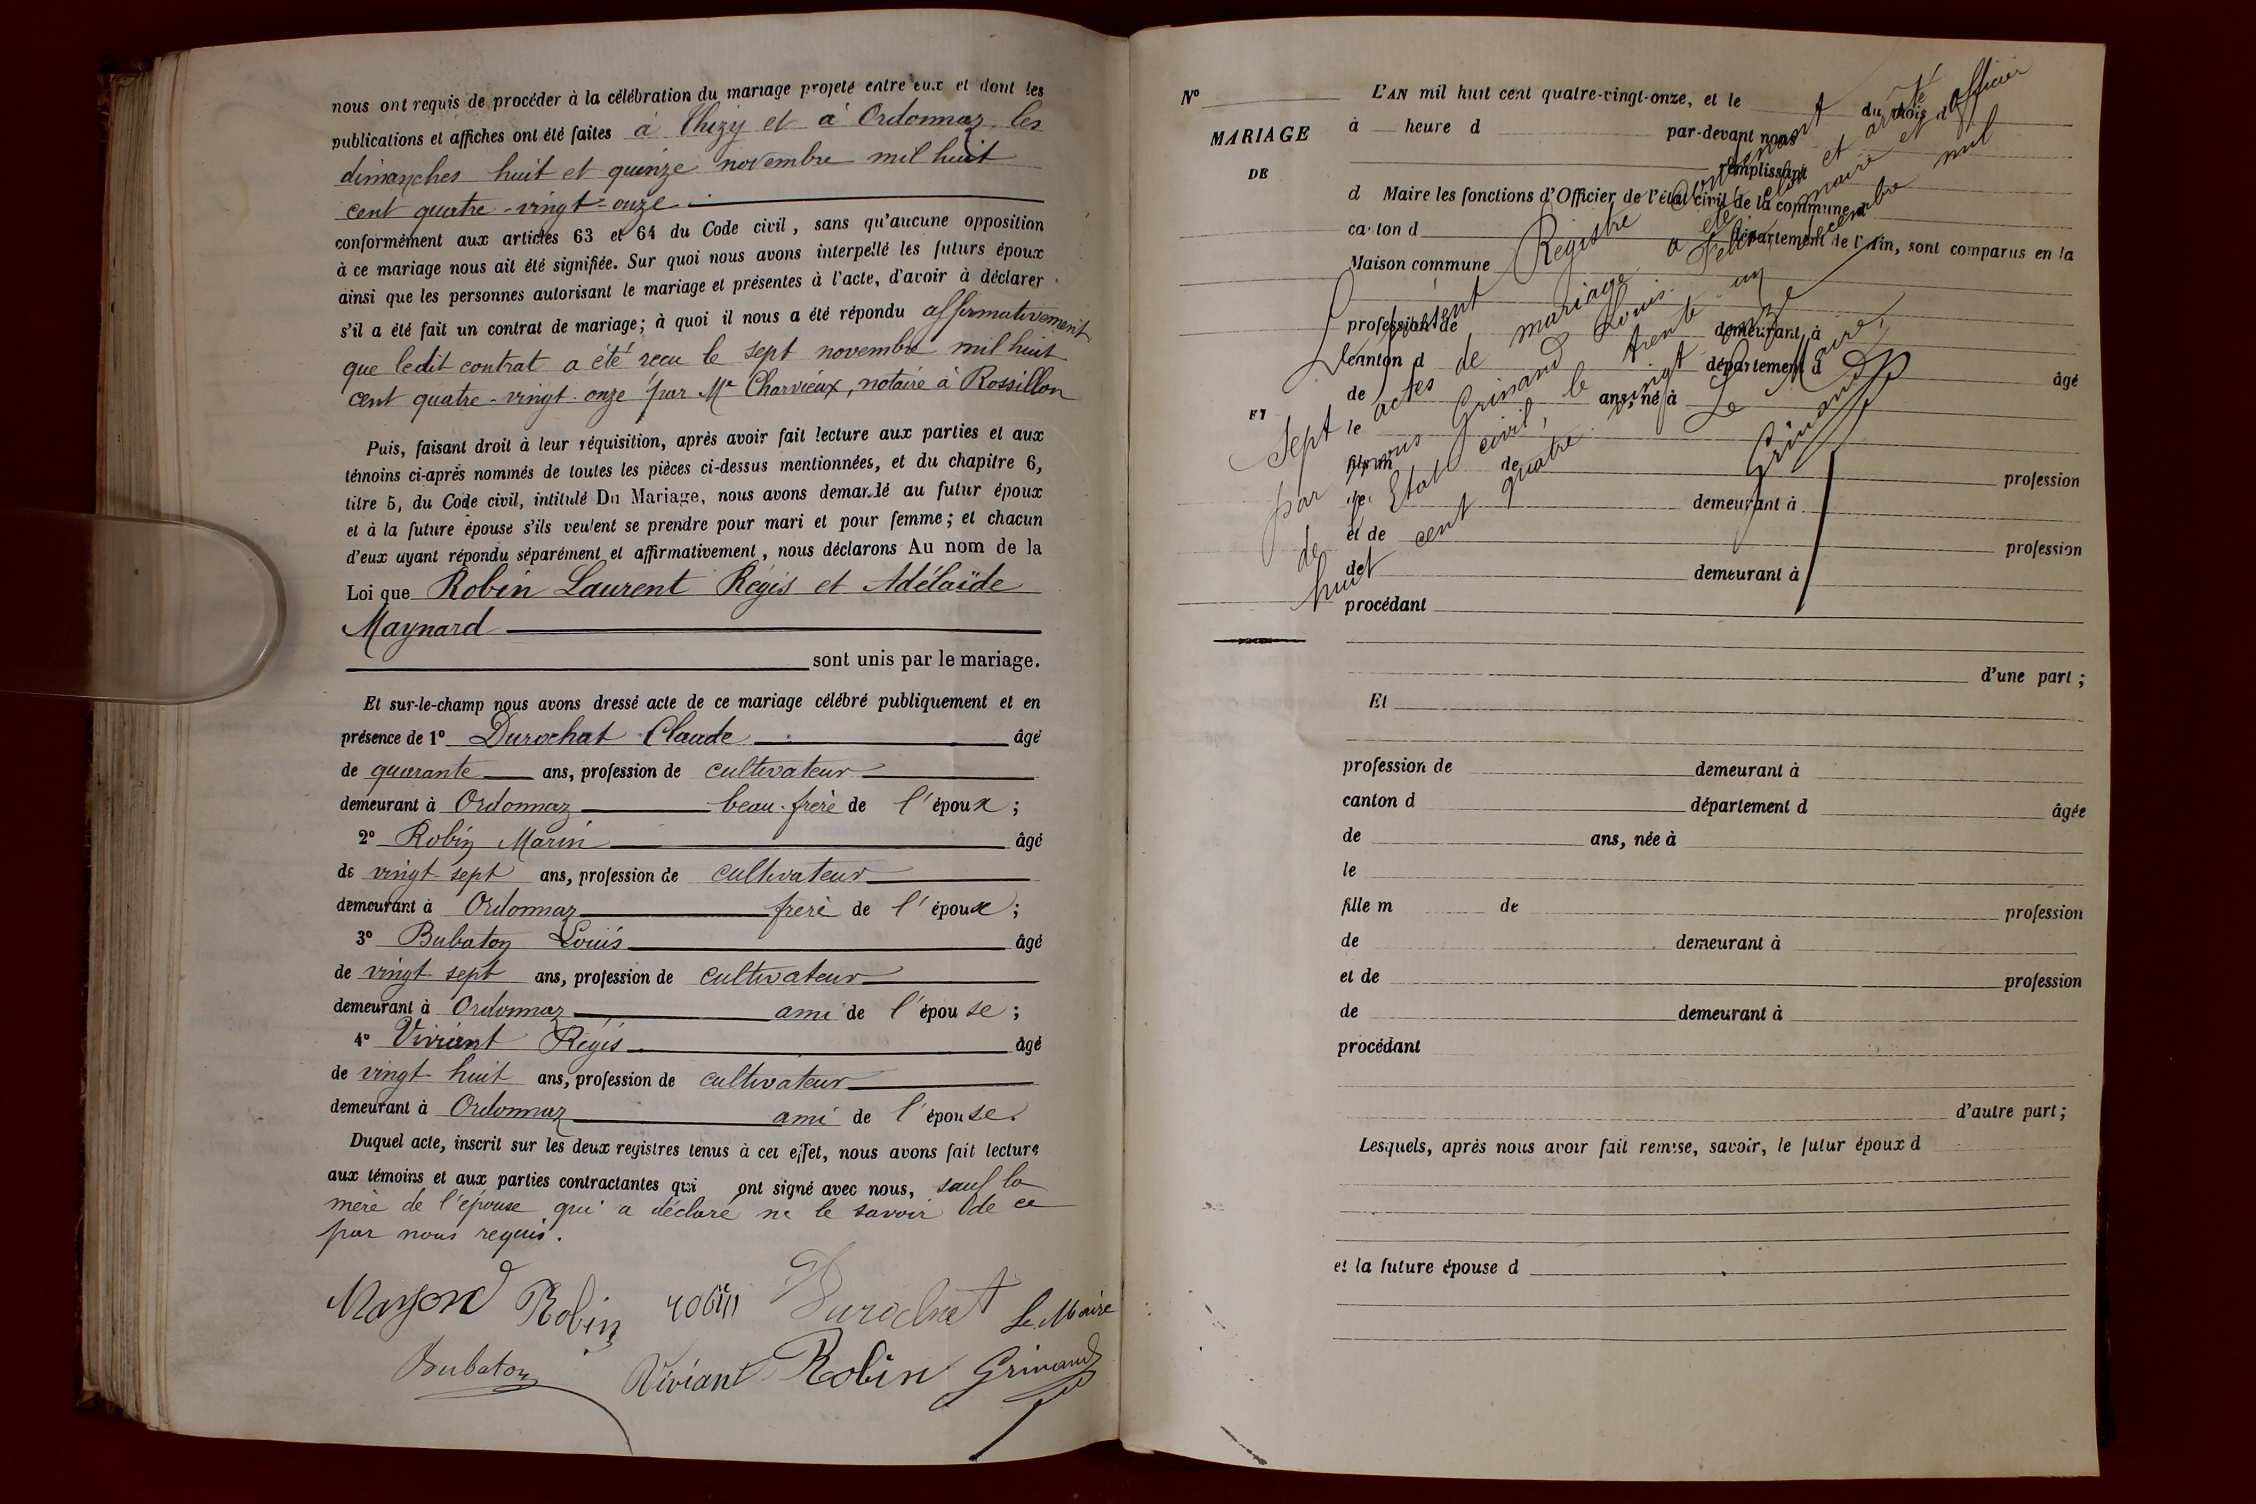 nous ont requis de procéder à la célébration du mariage projeté entre eux et dont les
publications et affiches ont été faites à Chezy et à Ordonnaz, les
dimanches huit et quinze novembre mil huit
cent quatre-vingt-onze
conformément aux articles 63 et 64 du Code civil, sans qu'aucune opposition
à ce mariage nous ait été signifiée. Sur quoi nous avons interpellé les futurs époux
ainsi que les personnes autorisant le mariage et présentes à l'acte, d'avoir à déclarer
s'il a été fait un contrat de mariage; à quoi il nous a été répondu affirmativement
que ledit contrat a été reçu le sept novembre mil huit
cent quatre-vingt-onze par Me Charvieux, notaire à Rossillon
Puis, faisant droit à leur réquisition, après avoir fait lecture aux parties et aux
témoins ci-après nommés de toutes les pièces ci-dessus mentionnées, et du chapitre 6,
titre 5, du Code civil, intitulé Du Mariage, nous avons demandé au futur époux
et à la future épouse s'ils veulent se prendre pour mari et pour femme; et chacun
d'eux ayant répondu séparément et affirmativement, nous déclarons Au nom de la
Loi que Robin Laurent Régis et Adélaïde
Maynard
sont unis par le mariage.
Et sur-le-champ nous avons dressé acte de ce mariage célébré publiquement et en
présence de 1° Durochat Claude âgé
de quarante ans, profession de cultivateur
demeurant à Ordonnaz beau-frère de l'époux;
2° Robin Marin âgé
de vingt-sept ans, profession de cultivateur
demeurant à Ordonnaz frère de l'époux;
3° Bubaton Louis âgé
de vingt-sept ans, profession de cultivateur
demeurant à Ordonnaz ami de l'épouse;
4° Viviant Régis âgé
de vingt-huit ans, profession de cultivateur
demeurant à Ordonnaz ami de l'épouse.
Duquel acte, inscrit sur les deux registres tenus à cet effet, nous avons fait lecture
aux témoins et aux parties contractantes qui ont signé avec nous, sauf la
mère de l'épouse qui a déclaré ne le savoir de ce
par nous requis.
Robin robin Durochat Le Maire
Bubaton Viviant Robin Grinand
N°
MARIAGE
DE
ET
L'AN mil huit cent quatre-vingt-onze, et le du mois d
à heure d par-devant nous
remplissant
d Maire les fonctions d'Officier de l'état civil de la commune d
canton d département de l'Ain, sont comparus en la
Maison commune
profession de demeurant à
canton d département d âgé
de ans, né à
le
fils m de profession
de demeurant à
et de profession
de demeurant à
procédant
d'une part;
Le présent Registre contenant
sept actes de mariage a été clos et arrêté
par nous Grinand Louis Félix, maire et officier
de l'Etat civil, le trente un décembre mil
huit cent quatre-vingt onze
Le Maire,
Grinand
Et
profession de demeurant à
canton d département d âgée
de ans, née à
le
fille m de profession
de demeurant à
et de profession
de demeurant à
procédant
d'autre part;
Lesquels, après nous avoir fait remise, savoir, le futur époux d
et la future épouse d